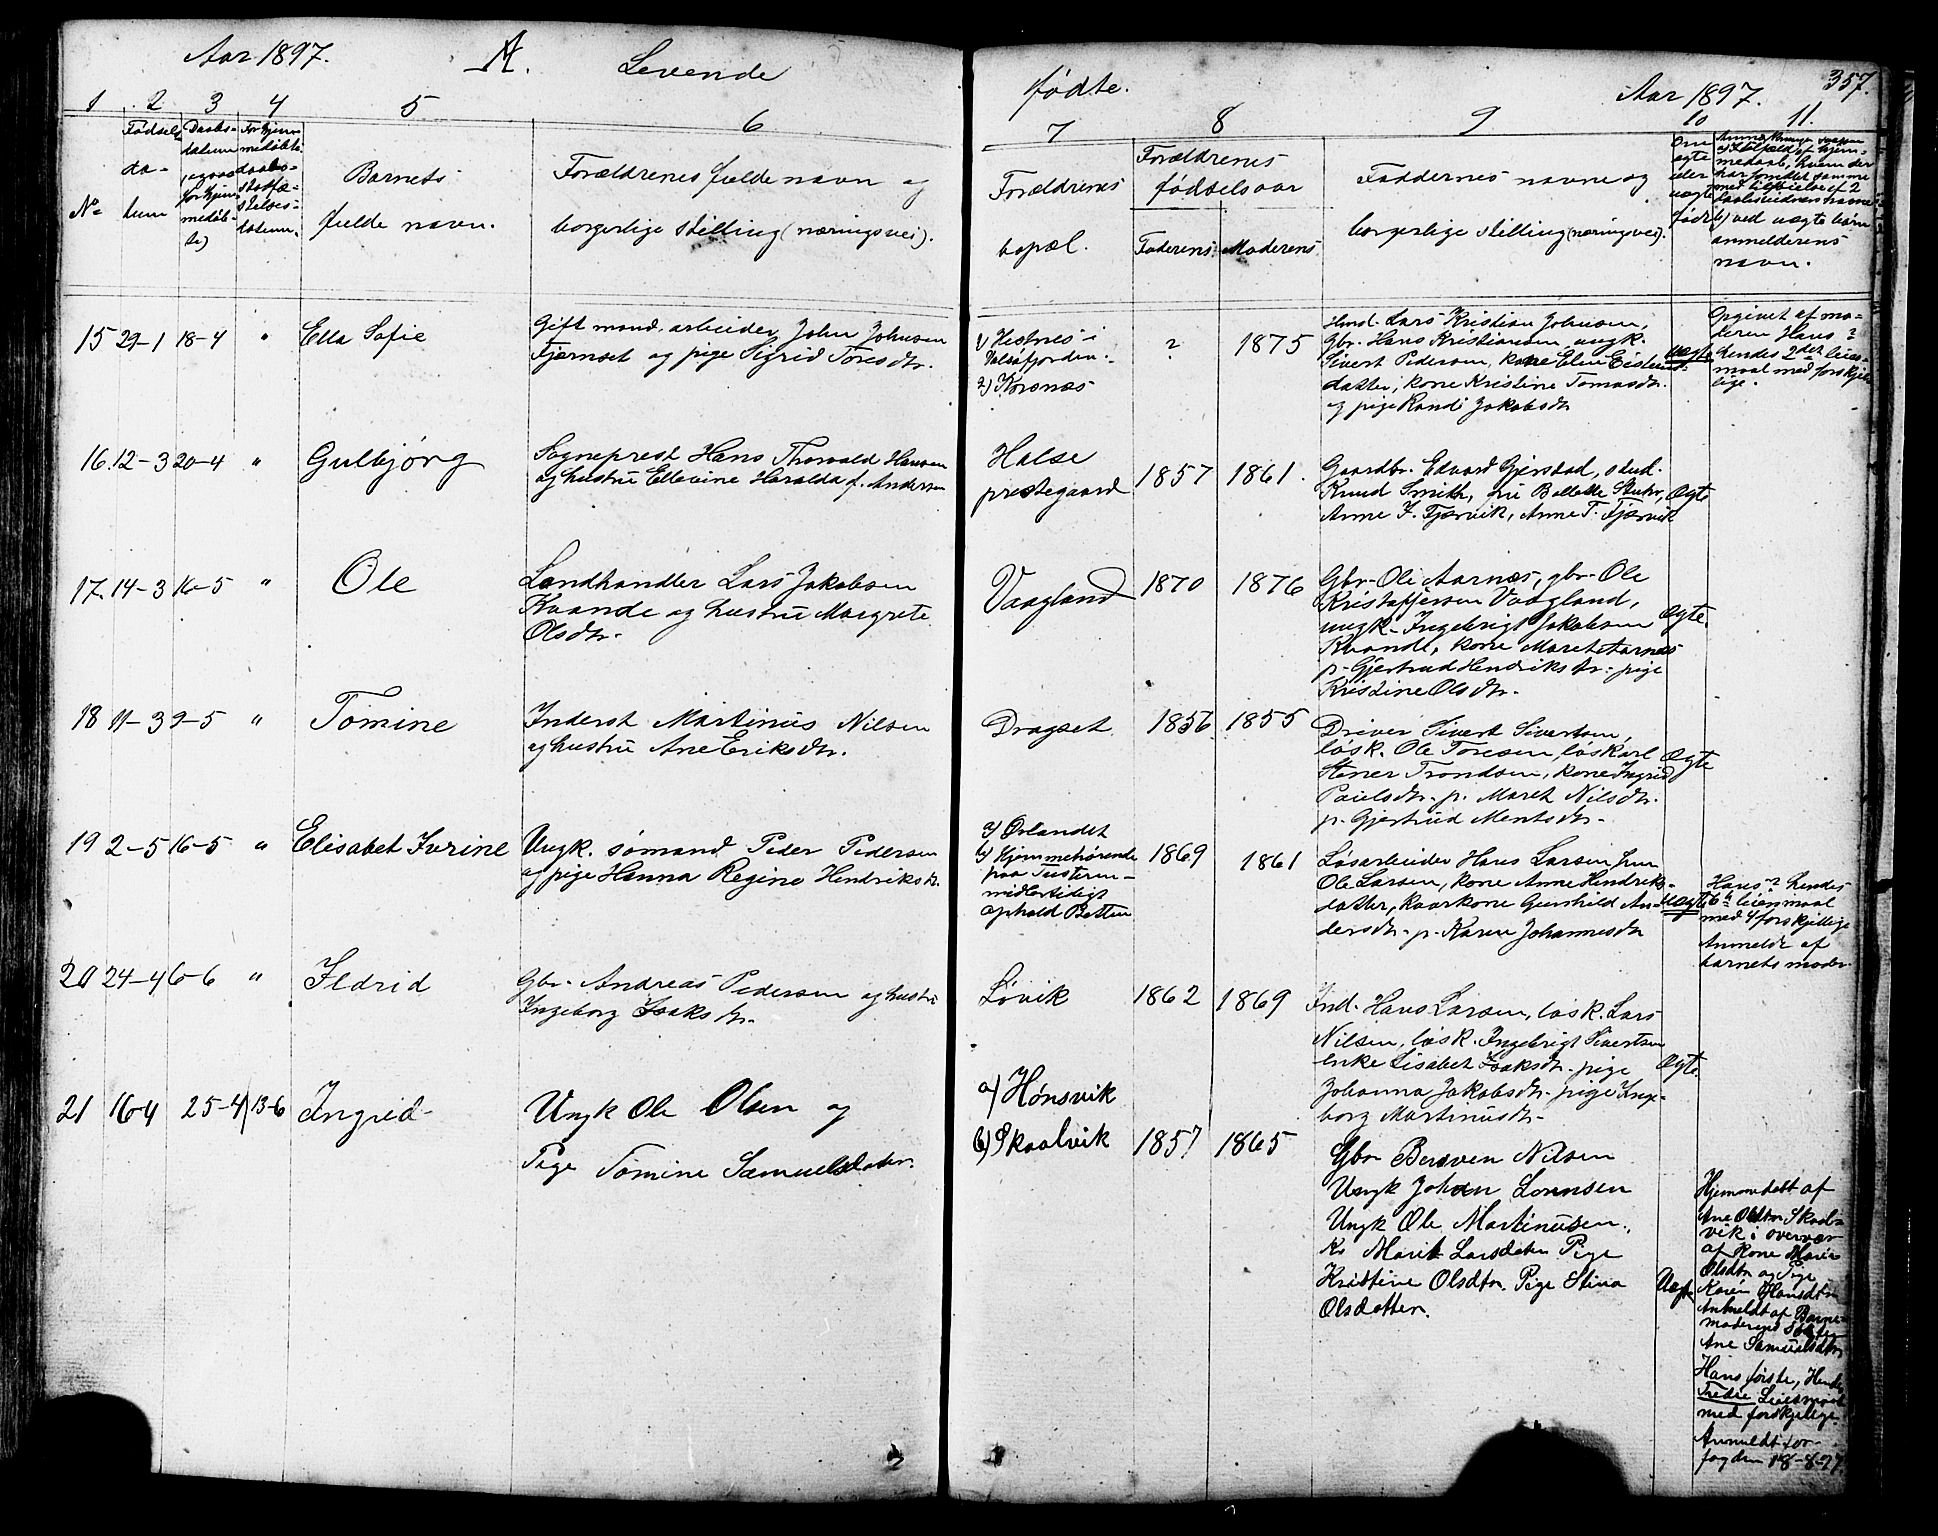 Aar 1897.
A.
Levende
fødte.
Aar 1897.
357.
1 2 3 4 5 6 7 8 9 10 11.
No
Fødsels-
da-
tum
Daabs-
datum
medaab-
daabs-
stadfæ-
stelses-
datum.
Barnets
fulde navn.
Forældrenes fulde navn og
borgerlige stilling (næringsvei).
Forældrenes
bopæl.
Forældrenes
fødselsaar
Faderens Moderens
Faddernes navne og
borgerlige stilling (næringsvei).
Om
ægte
eller
uægte
født
b) ved uægte børn
anmelderens
navn.
15 29-1 18-4 "
Ella Sofie
Gift mand, arbeider John Johnsen
Fjærnset og pige Sigrid Toresdtr.
1) Hestnes i
Valsøfjorden.
2) Korsnæs
? 1875
Ind. Lars Kristian Johnsen,
Gbr. Hans Kristiansen, ungk.
Sivert Pedersen, kone Elen Eistens-
datter, kone Kristine Tomasdtr.
og pige Randi Jakobsdtr
uægte
Opgivet af mo-
deren Hans ?
hendes 2det leier-
maal med forskjel-
lige.
16. 12-3 20-4 "
Gulbjørg
Sogneprest Hans Thorvald Hansen
og hustru Ellevine Haralda f. Andersen
Halse
prestegaard
1857 1861.
Gaardbr. Edvard Gjerstad, stud.
Knud Smith, fru Bollette Stuhr,
Anne J. Fjærvik, Anne T. Fjærvik
Ægte
17. 14-3 16-5 "
Ole
Landhandler Lars Jakobsen
Kvande og hustru Margrete
Olsdtr.
Vaagland
1870 1876
Gbr. Ole Aarnæs, gbr. Ole
Kristoffersen Vaagland,
ungk. Ingebrigt Jakobsen
Kvande, kone Maret Aarnæs
p. Gjertrud Hendriksdtr. pige
Kristine Olsdtr.
Ægte.
18 11-3 9-5 "
Tomine
Inderst Martinus Nilsen
og hustru Ane Eriksdtr.
Dragset
1856 1855
Driver Sivert Sivertsen,
løsk. Ole Toresen, løskarl
Stener Trondsen, kone Ingrid
Paulsdtr. p. Maret Nilsdtr.
p. Gjertrud Mentsdtr.
Ægte
19 2-5 16-5 "
Elisabet Iverine
Ungk. sømand Peder Pedersen
og pige Hanna Regine Hendriksdtr.
a) Ørlandet
b) Hjemmehørende
paa Tusteren
midlertidigt
ophold Botten
1869 1861
Løsarbeider Hans Larsen,
Ole Larsen, kone Anne Hendriks-
datter, kaarkone Gunhild An-
dersdtr. p. Karen Johannesdtr
uægte
Hans ? hendes
6te leiermaal
med 4 forskjellige
Anmeldt af
barnets moder.
20 24-4 6-6 "
Ildrid
Gbr. Andreas Pedersen og hustru
Ingeborg Isaksdtr.
Løvik
1862 1869
Ind. Hans Larsen, løsk. Lars
Nilsen, løsk. Ingebrigt Sivertsen
enke Lisabet Isaksdtr. pige
Johanna Jakobsdtr. pige Inge-
borg Martinusdtr.
Ægte.
21 16-4 25-4 13-6
Ingrid
Ungk Ole Olsen og
Pige Tomine Samuelsdatter.
a) Hønsvik
b) Skaalvik
1857 1865
Gbr Beröven Nilsen
Ungk Johan Lornsen
Ungk Ole Martinusen.
Ko Marit Larsdatter Pige
Kristine Olsdtr. Pige Stina
Olsdatter.
Uægte
Hjemmedøbt af
Ane Olsdtr Skaal-
vik i overvær
af Kone Marie
Olsdtr og Pige
Karen Hansdtr
Anmeldt af Barne-
moderens Søster
Ane Samuelsdtr
Hans første, Hendes
Tredie Leiermaal
med forskjelige.
Anmeldt for
fogden 18-8-97